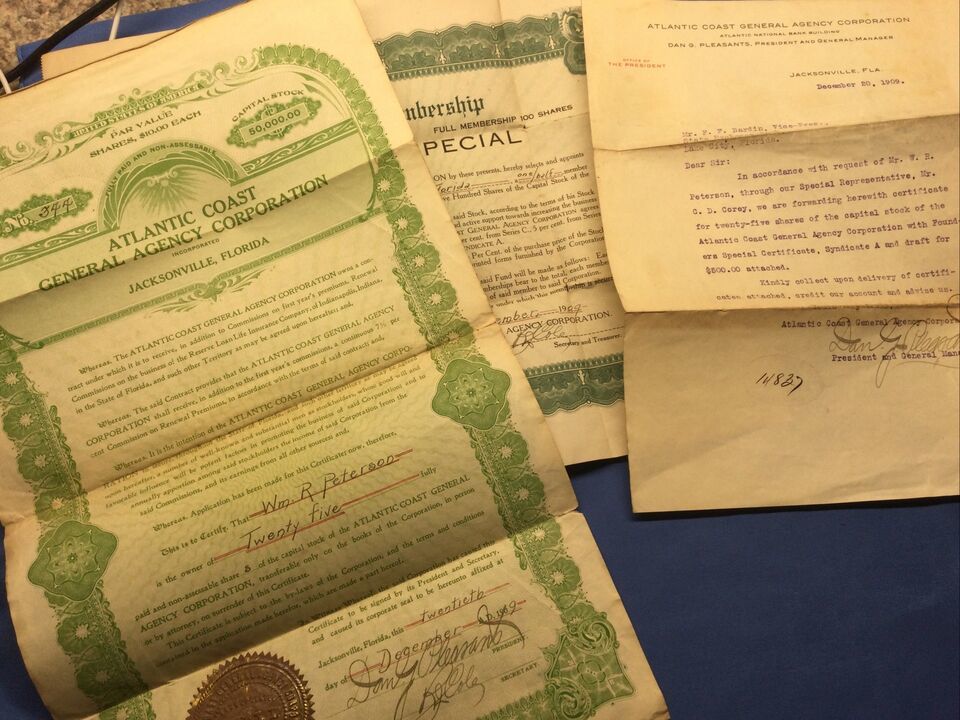 UNITED STATES OF AMERICA
PAR VALUE
SHARES, $10.00 EACH
CAPITAL STOCK
50,000.00
FULLY PAID AND NON-ASSESSABLE
NO. 344
ATLANTIC COAST
GENERAL AGENCY CORPORATION
INCORPORATED
JACKSONVILLE, FLORIDA
Whereas, The ATLANTIC COAST GENERAL AGENCY CORPORATION owns a con-
tract under which it is to receive, in addition to Commissions on first year's premiums, Renewal
Commissions on the business of the Reserve Loan Life Insurance Company, of Indianapolis, Indiana,
in the State of Florida, and such other Territory as may be agreed upon hereafter; and,
Whereas, The said Contract provides that the ATLANTIC COAST GENERAL AGENCY
CORPORATION shall receive, in addition to the first year's commissions, a continuous 7½ per
cent Commission on Renewal Premiums, in accordance with the terms of said contract and,
Whereas, It is the intention of the ATLANTIC COAST GENERAL AGENCY CORPO-
RATION
upon hereafter, a number of well-known and substantial men as stockholders, whose good will and
favorable influence will be potent factors in promoting the business of said Corporation; and to
annually apportion among said stockholders the income of said Corporation from the
said Commissions, and its earnings from all other sources; and,
Whereas, Application has been made for this Certificate; now, therefore,
This is to Certify, That Wm. R Peterson
is the owner of Twenty Five fully
paid and non-assessable share s of the capital stock of the ATLANTIC COAST GENERAL
AGENCY CORPORATION, transferable only on the books of the Corporation, in person
or by attorney, on surrender of this Certificate.
This Certificate is subject to the by-laws of the Corporation, and the terms and conditions
contained in the application made herefor, which are made a part hereof.
In Witness Whereof, said Corporation has caused this
Certificate to be signed by its President and Secretary,
and caused its corporate seal to be hereunto affixed at
Jacksonville, Florida, this twentieth
day of December A. D. 1909
Dan G. Pleasants PRESIDENT
SECRETARY
mbership
FULL MEMBERSHIP 100 SHARES
PECIAL
ON by these presents, hereby selects and appoints
Florida, one/half member
ve Hundred Shares of the Capital Stock of the
said Stock, according to the terms of his Stock
and active support towards increasing the business
T GENERAL AGENCY CORPORATION agrees
per cent. from Series C., 5 per cent. from Series
NDICATE A.
Per Cent. of the purchase price of the Stock
printed forms furnished by the Corporation
said Fund will be made as follows: Each
mberships bear to the total, each member
of said member to said Corporation.
under which this membership is secured
ember, 1909
AGENCY CORPORATION.
Secretary and Treasurer.
ATLANTIC COAST GENERAL AGENCY CORPORATION
ATLANTIC NATIONAL BANK BUILDING
DAN G. PLEASANTS, PRESIDENT AND GENERAL MANAGER
OFFICE OF
THE PRESIDENT
JACKSONVILLE, FLA.
December 20, 1909.
Mr. F. F. Bardin, Vice-Pres.,
Lake City, Florida.
Dear Sir:
In accordance with request of Mr. W. R.
Peterson, through our Special Representative, Mr.
C. D. Corey, we are forwarding herewith certificate
for twenty-five shares of the capital stock of the
Atlantic Coast General Agency Corporation with Found-
ers Special Certificate, Syndicate A and draft for
$500.00 attached.
Kindly collect upon delivery of certifi-
cates attached, credit our account and advise us.
Atlantic Coast General Agency Corpor
Dan G. Pleasan
President and General Mana
14827